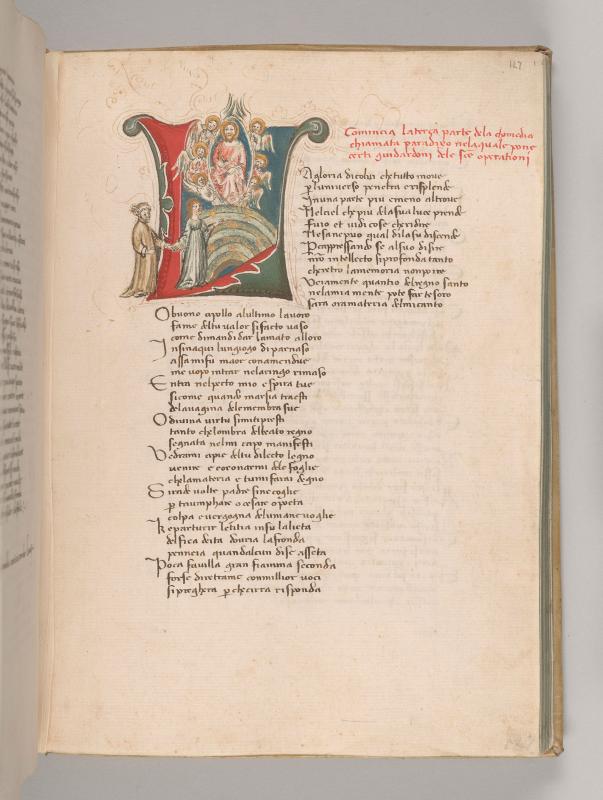 127
Comincia la terça parte dela chomedia
chiamata paradixo nela quale pone
certi guidardoni dele scē operationi
La gloria di colui che tutto move
per luniverso penetra e risplende
In una parte piu e meno altrove
Nel ciel che piu dela sua luce prende
fu io et vidi cose che ridire
Ne sa ne puo qual di la su discende
Per apressando se al suo disire
nrō intellecto si profonda tanto
che retro la memoria non po ire
Veramente quantio del regno santo
nela mia mente pote far tesoro
sara ora materia del mi canto
O buono apollo al ultimo lavoro
fame del tu valor si facto vaso
come dimandi dar lamato alloro
Insina qui lun giogo di parnaso
assa mi fu ma or con amendue
me uopo intrar nel aringo rimaso
Entra nel pecto mio e spira tue
sicome quando marsia traesti
de la vagina dele membra sue
O divina virtu si mi ti presti
tanto che lombra del beato regno
segnata nel mi capo manifesti
Vedrami a pie del tu dilecto legno
venire e coronarmi dele foglie
che la materia e tu mi farai degno
Si rade volte padre sine coglie
per triumphare o cesare o poeta
colpa e vergogna del umane voglie
Ke parturir letitia in su la lieta
delfica deita dovria la fronda
penneia quando alcun di se asseta
Poca favilla gran fiamma seconda
forse diretro a me con millior voci
si pregherra perche cirra risponda